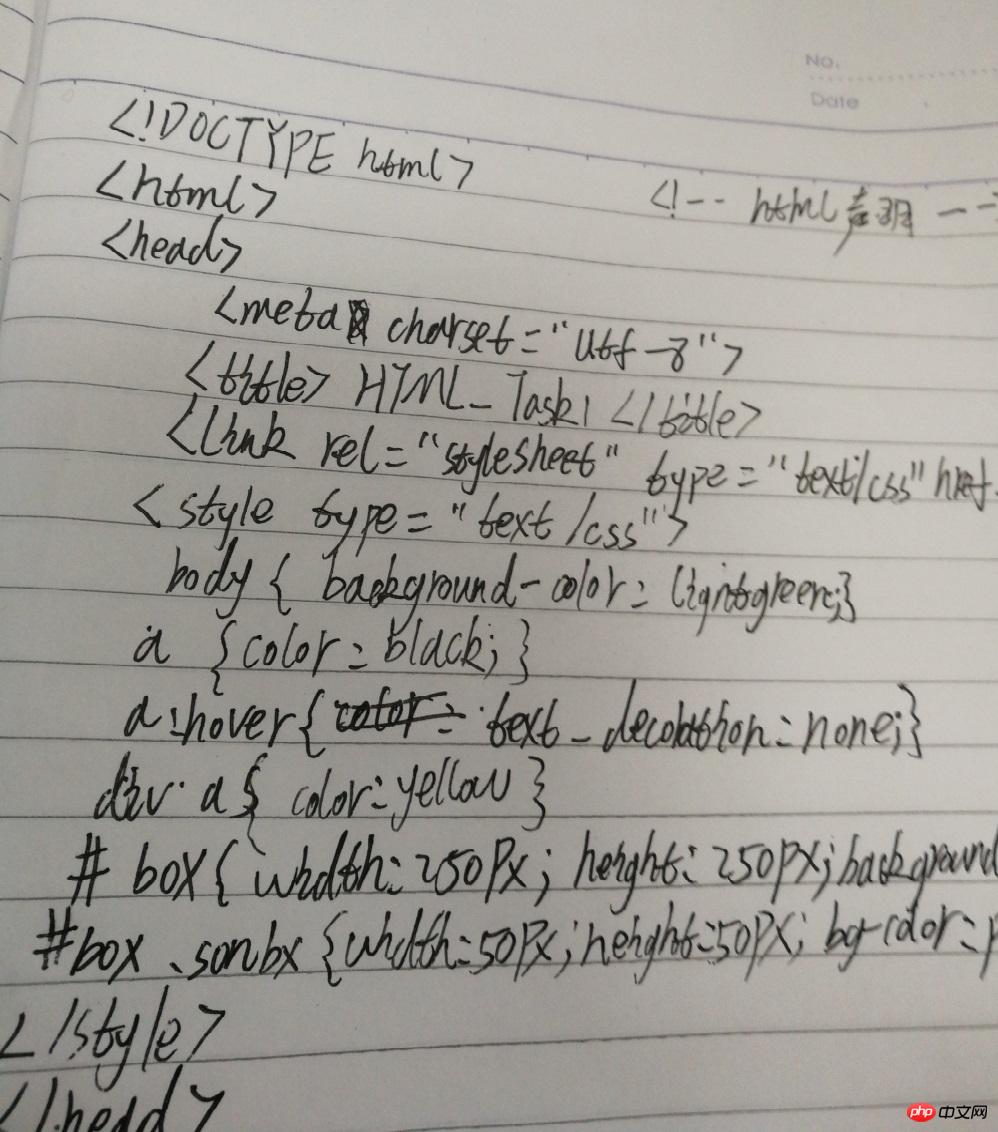 No.
Date
<!DOCTYPE html>
<html> <!-- html声明 --
<head>
<meta charset="utf-8">
<title> HTML_Task1 </title>
<link rel="stylesheet" type="text/css" href
<style type="text/css">
body { background-color: lightgreen;}
a {color: black;}
a:hover{ text-decoration: none;}
div a{ color: yellow }
# box{ width: 250px; height: 250px; background
#box .sonbx {width: 50px; height: 50px; bg-color: p
</style>
</head>
php 中文网